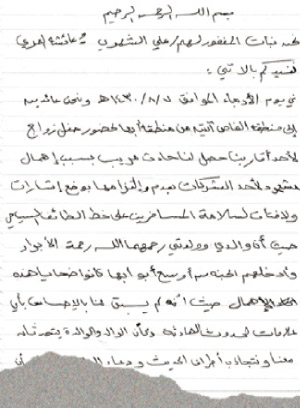 بسم الله الرحمن الرحيم
نحن بنات المغفور لهم / علي الشهري و عائشة العمري
نفيدكم بالاتي :
في يوم الأربعاء الموافق ١٤٣٠/٨/٧هـ ونحن عائدين
إلى منطقة من منطقة أبها لحضور حفل زواج
لأحد أقاربنا حصل لنا حادث مريب بسبب إهمال
لأحد الشركات بعدم إلتزامها بوضع إشارات
ولافتات لسلامة المسافرين على خط الطائف السياحي
حيث أن والدي ووالدتي رحمهما الله رحمة الأبرار
وأدخلهم الجنة من أوسع أبوابها كانوا ضحايا هذه
الإهمال حيث أنه لم يسبق لنا بالإحساس بأي
علامات لحدوث الحادثة وكأن الوالد والوالدة يتحدثان
معنا ونتجاذب أطراف الحديث و